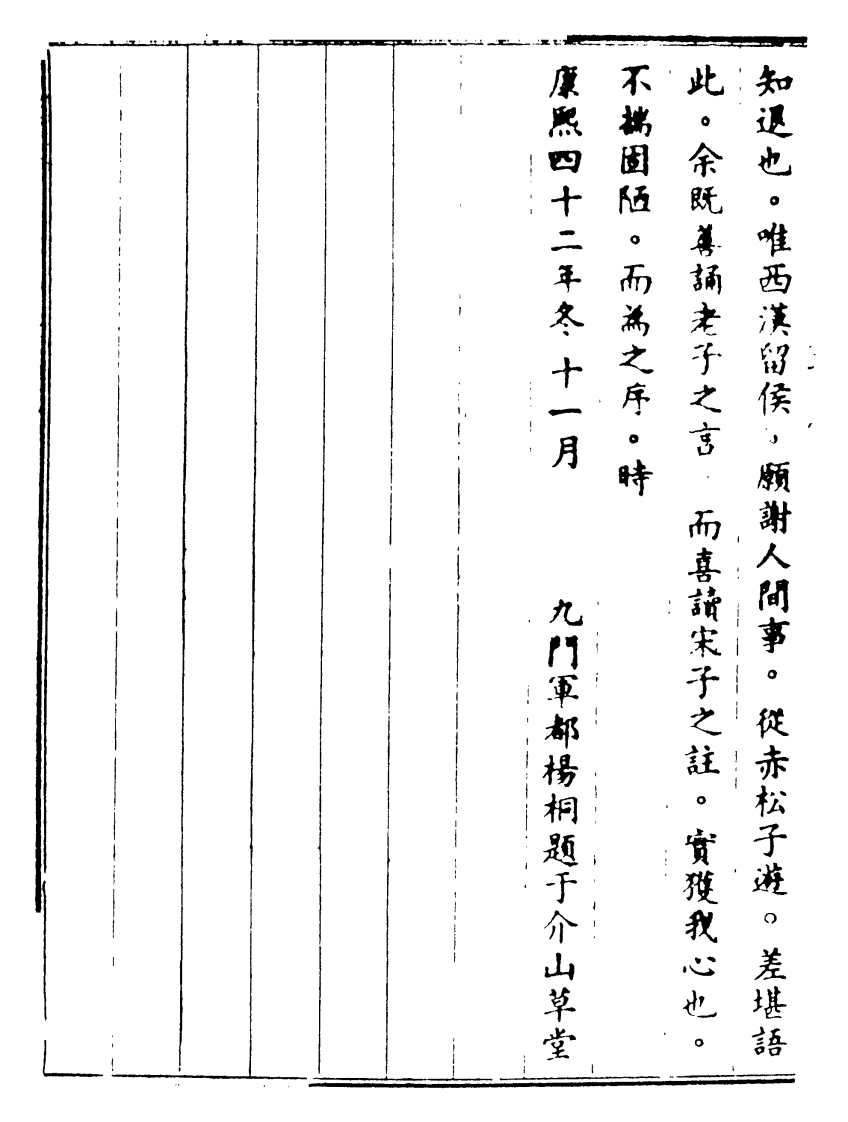 知退也。唯西漢留侯，願謝人間事。從赤松子遊。差堪語
此。余既善誦老子之言　而喜讀宋子之註。實獲我心也。
不揣固陋。而為之序。時
康熙四十二年冬十一月　　九門軍都楊桐題于介山草堂